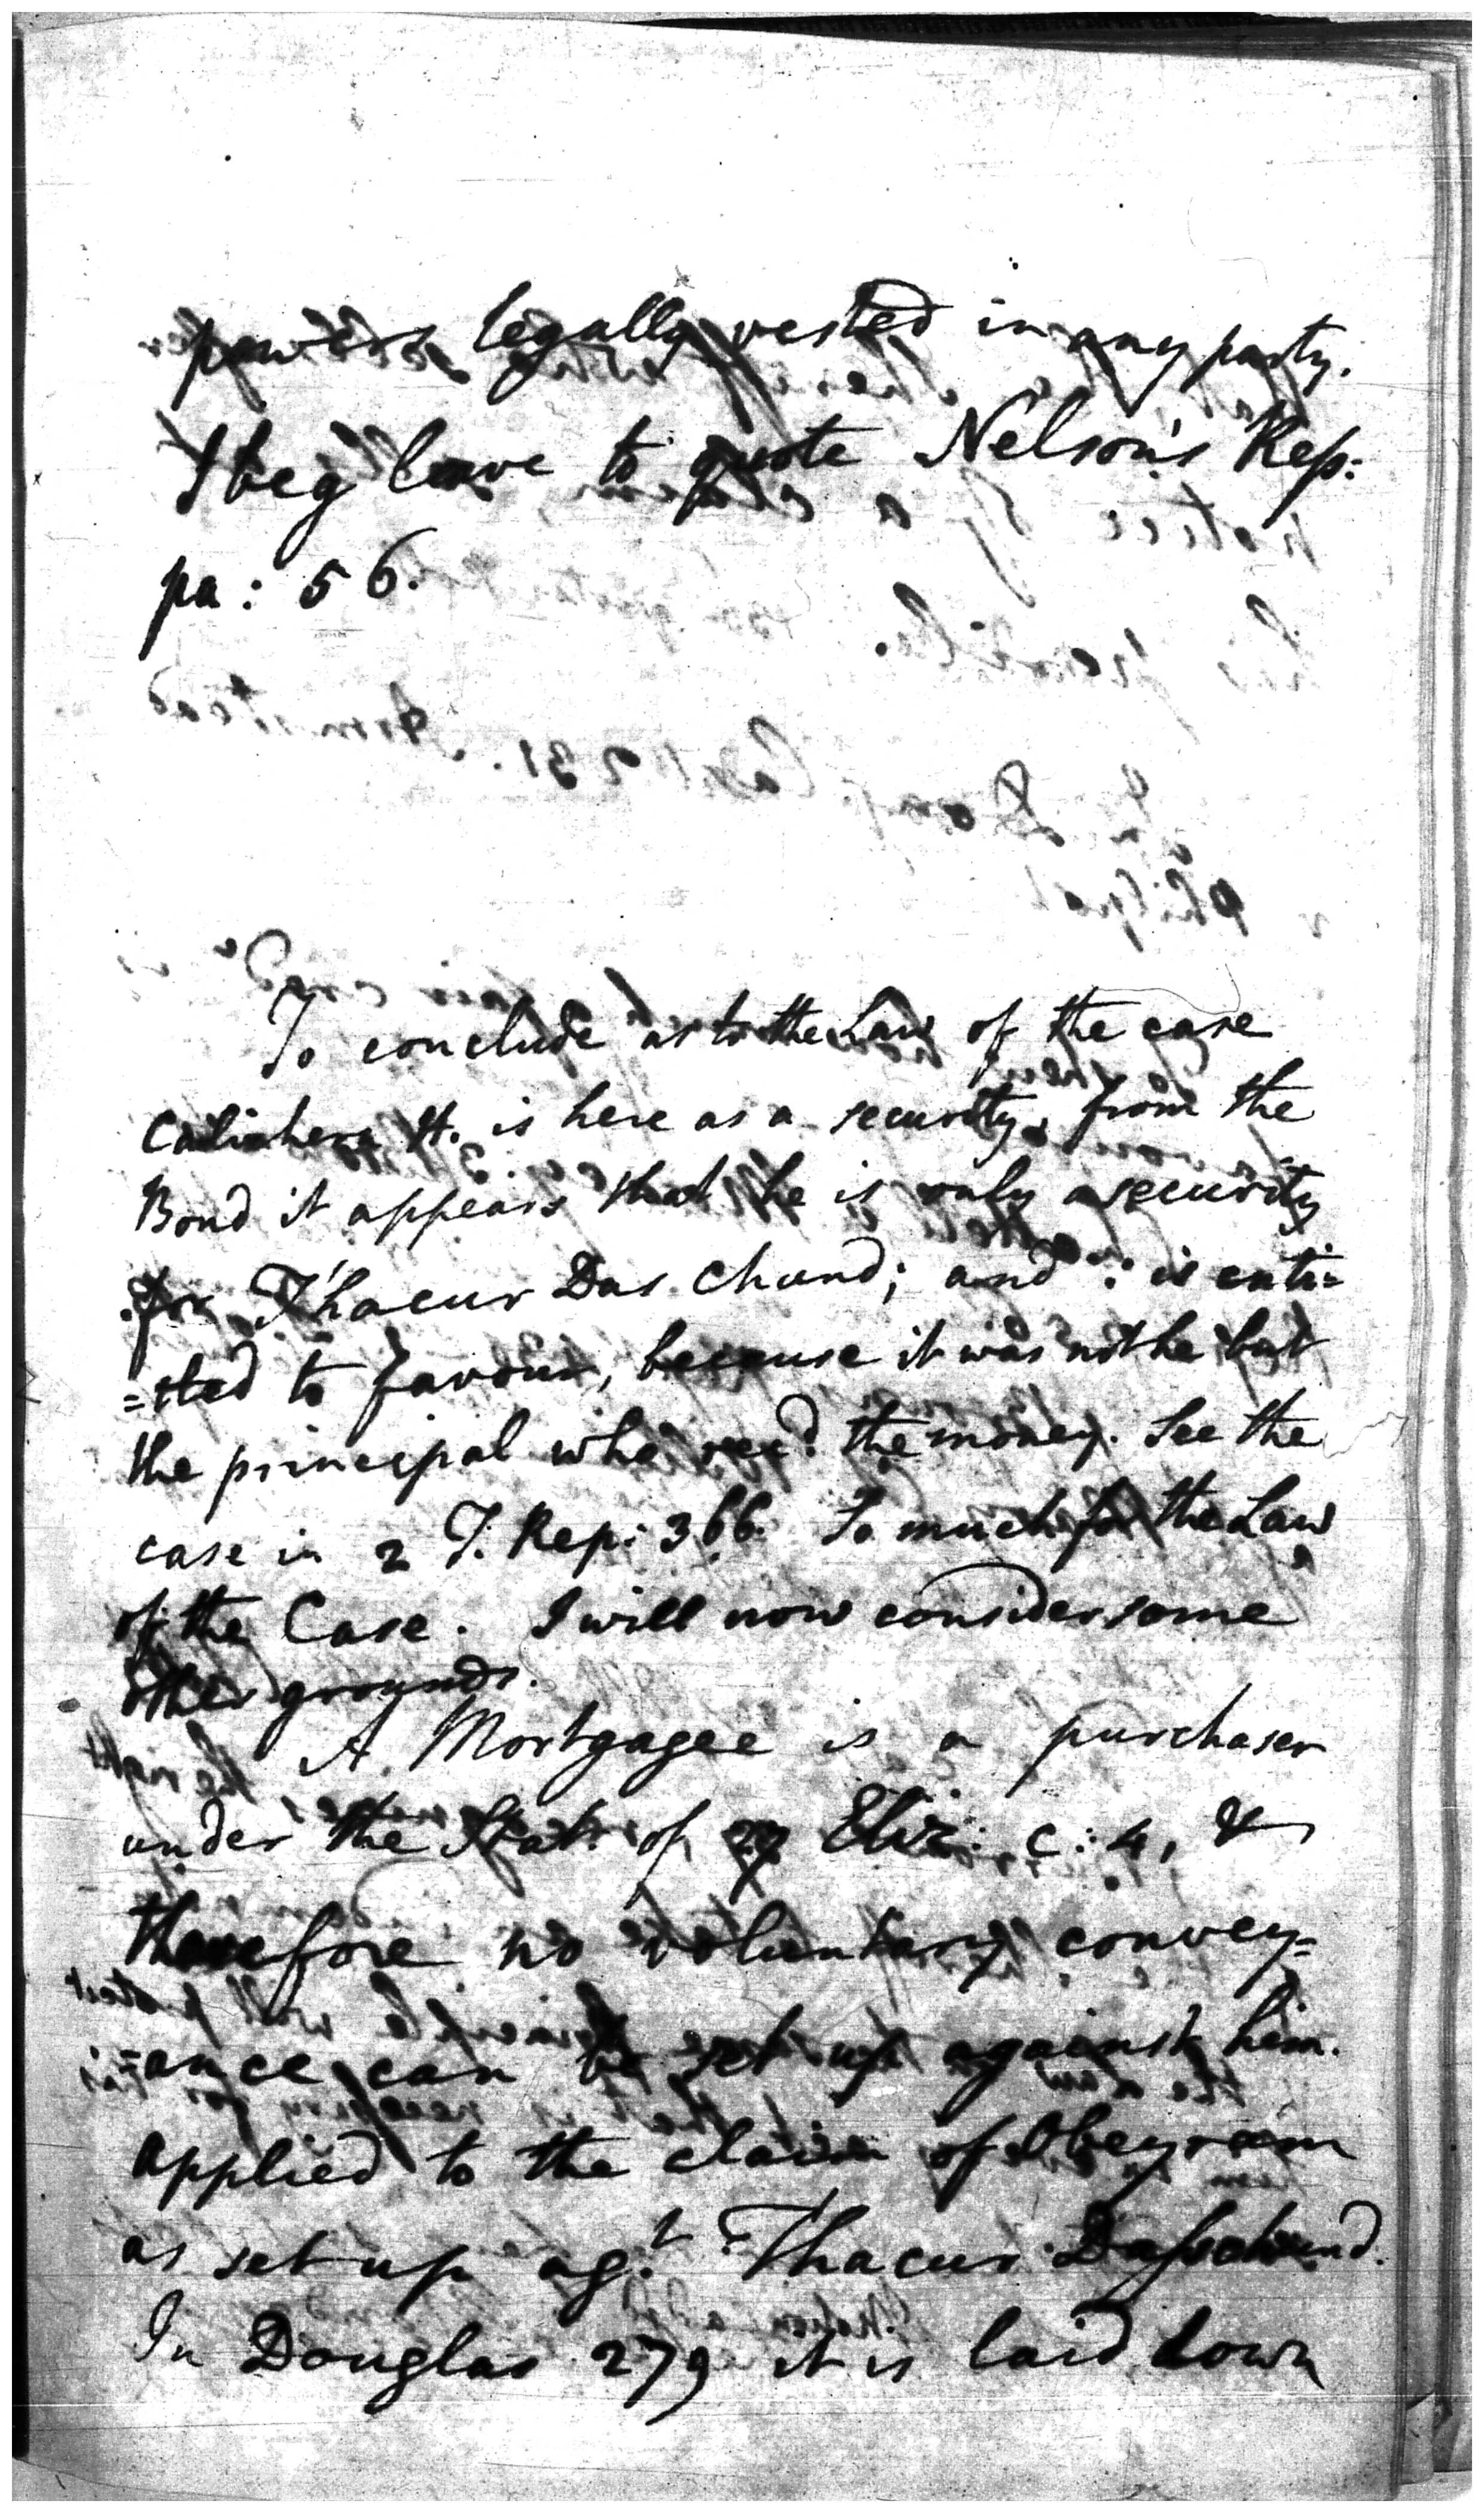 powers legally vested in any party.
I beg leave to quote Nelson's Rep:
pa: 56.
To conclude as to the Law of the case
is here as a security, from the
Bond it appears that he is only a security
for Thacur Das Chund; and ∴ is enti=
=tled to favour, because it was not he but
the principal who recd. the money. See the
case in 2 T. Rep: 366. So much for the Law
of the Case. I will now consider some
other grounds.
A Mortgagee is a purchaser
under the Stat: of 27 Eliz: c: 4, &
therefore no voluntary convey=
=ance can be set up against him.
applied to the claim of Obeyram
as set up agt. Thacur Daschund.
In Douglas 279 it is laid down